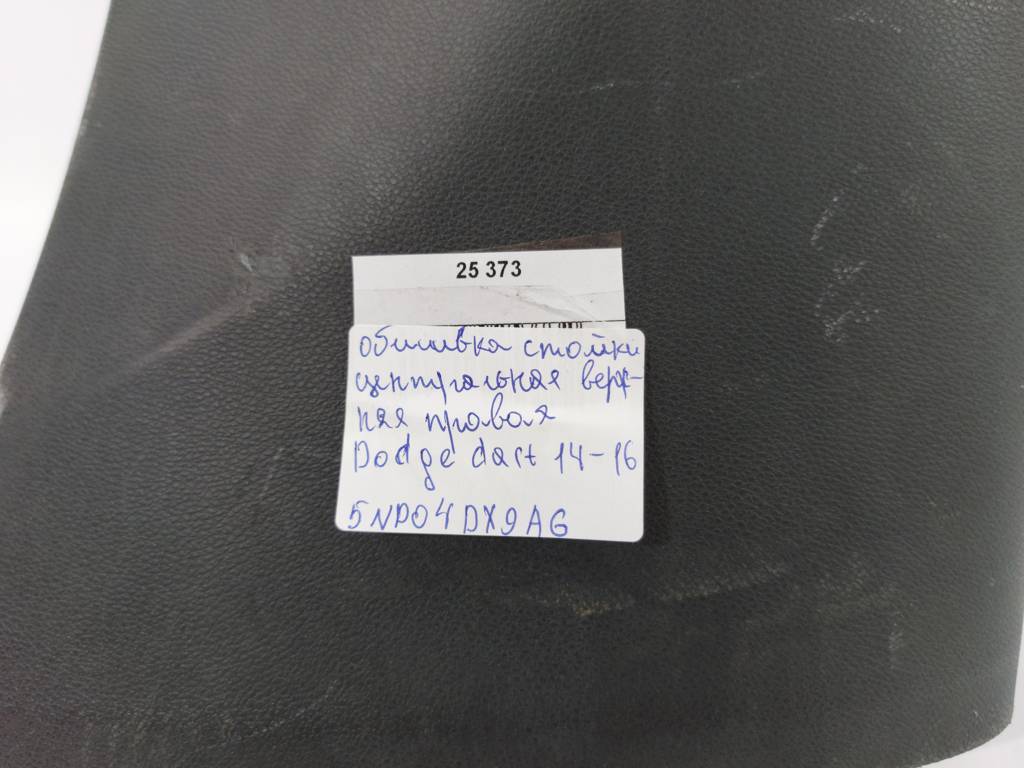 25 373
обшивка стойки
центральная верх-
няя правая
Dodge dart 14-16
5NP04DX9AG